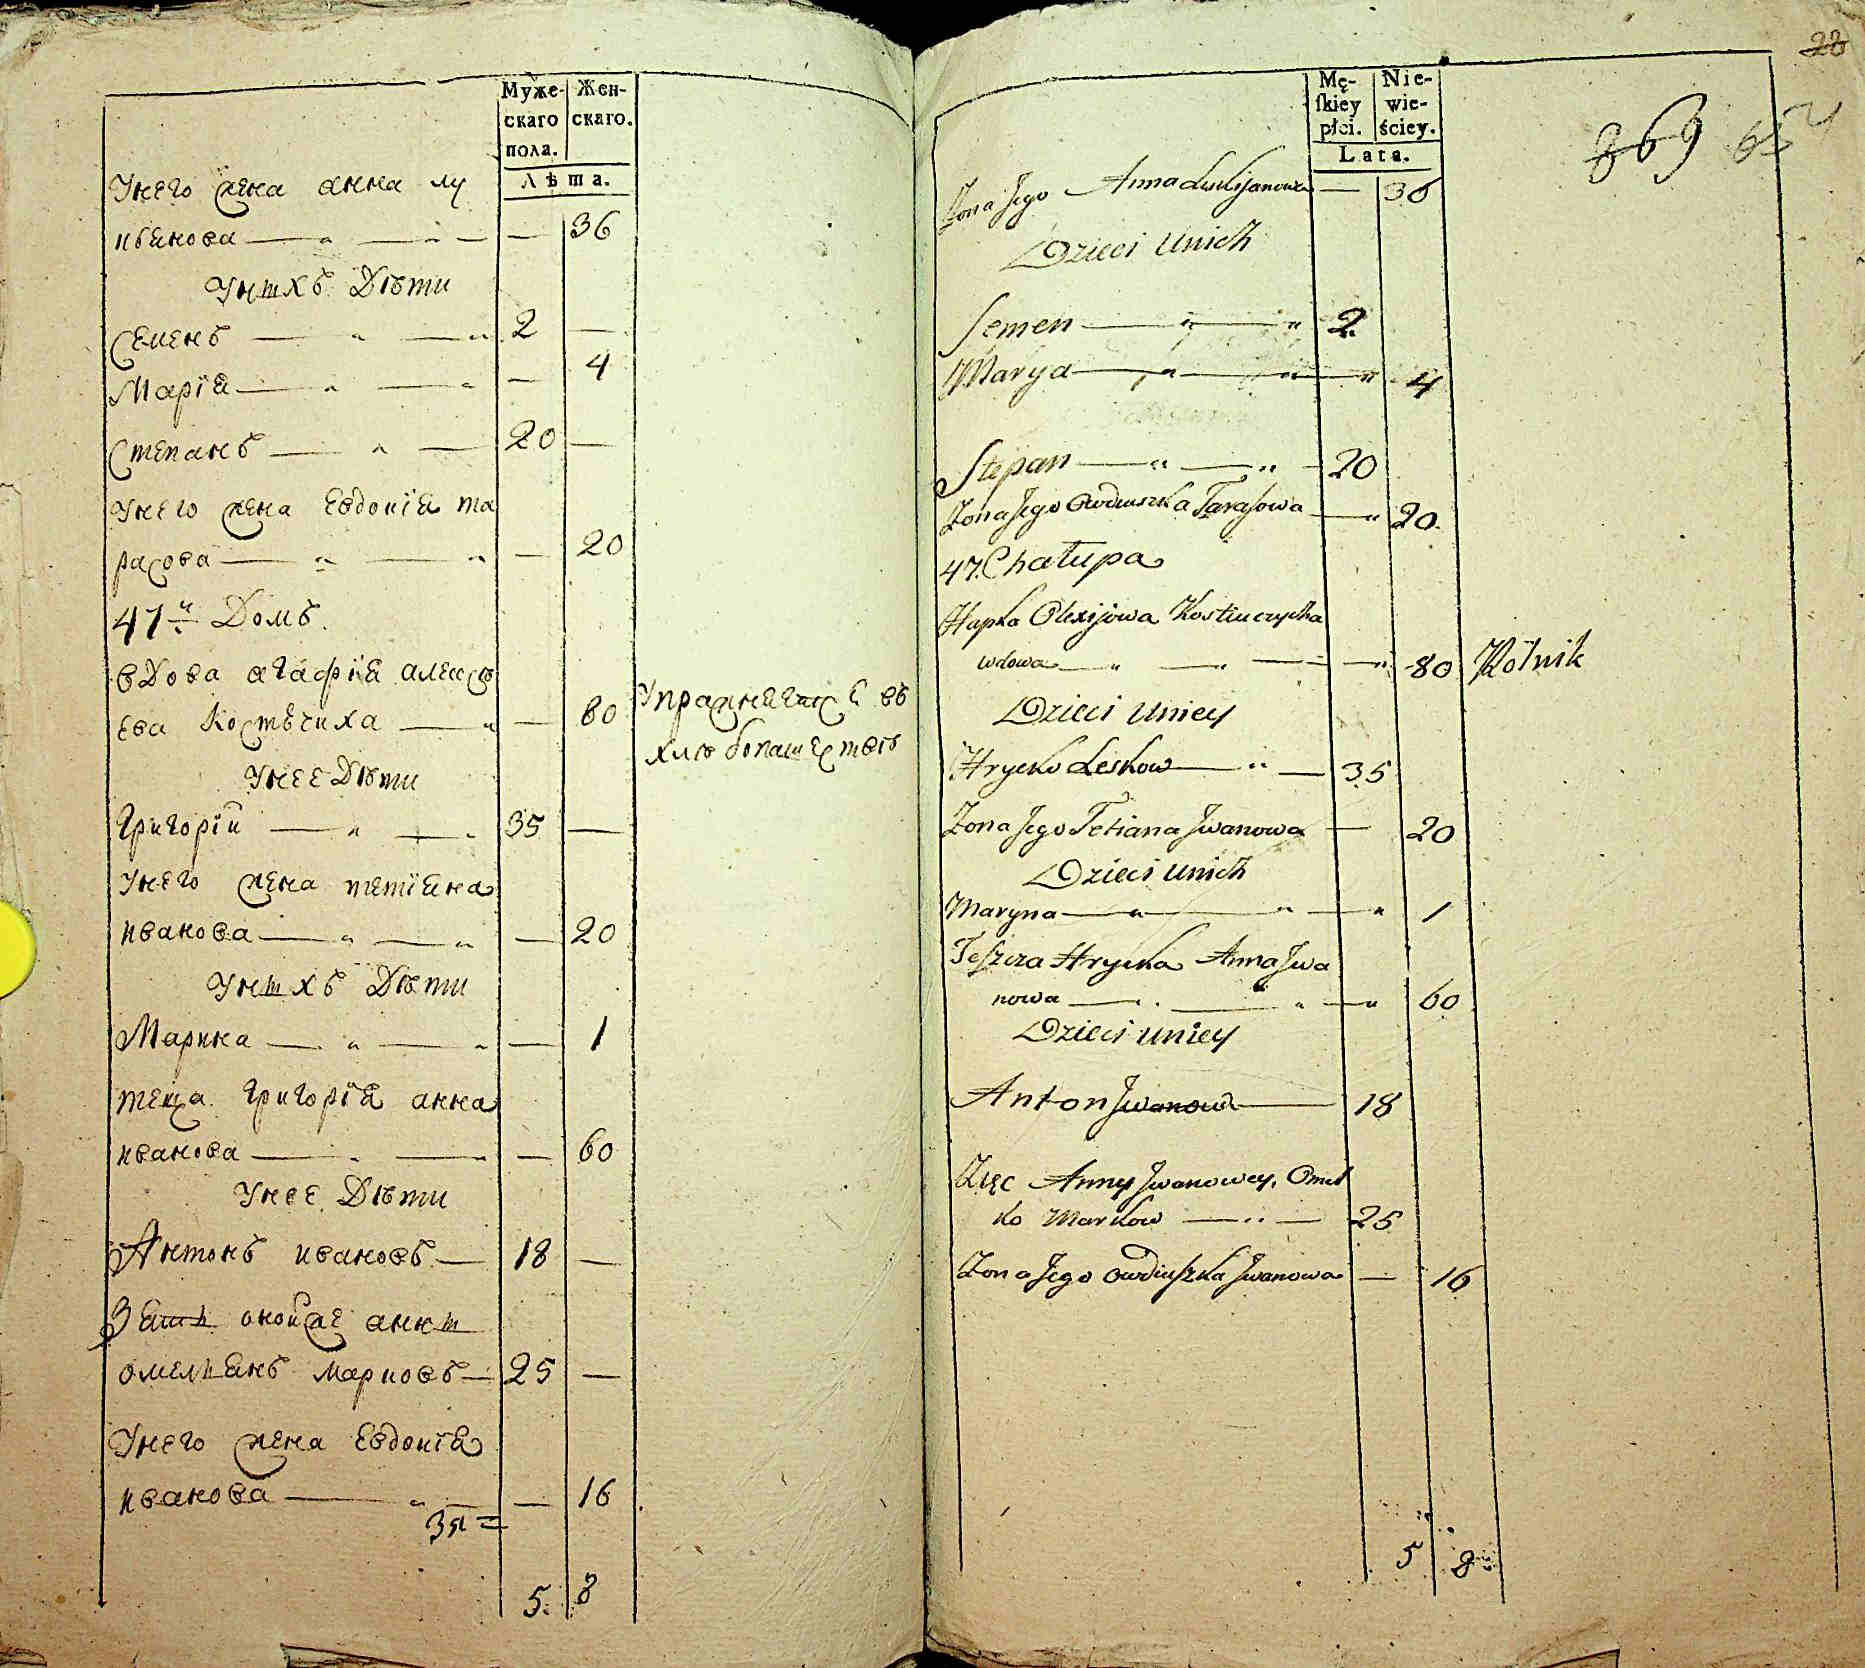 Муже-
скаго
пола.
Жен-
скаго.
Лѣта.
Унего жена анна лу
кьянова — „ — „ — — 36
Унихъ Дѣти
Семенъ — „ — „ 2 —
Марія — „ — „ — 4
Степанъ — „ — 20 —
Унего жена Евдокія та
расова — „ — „ — 20
47й Домъ.
вдова агафія алексѣ
ева Костючиха — „ — 80
Упражняется въ
хлѣбопашествѣ
Унее Дѣти
Григорій — „ — 35 —
Унего жена тетіяна
иванова — „ — „ — 20
Унихъ Дѣти
Марина — „ — „ — 1
теща григорія анна
иванова — „ — „ — 60
Унее Дѣти
Антонъ ивановъ — 18 —
Зять оной же анны
омельянъ марковъ — 25 —
Унего жена Евдокія
иванова — „ — — 16
5. 8
28
869
Mę-
skiey
płci.
Nie-
wie-
ściey.
Lata.
Zona Jego Anna Lukijanowa — 36
Dzieci Unich
Semen — „ — „ 2
Marya — „ — „ — „ 4
Stepan — „ — „ — 20
Zona Jego Owdiuszka Tarasowa — „ 20
47. Chałupa
Hapka Olexijowa Kostiuczycha
wdowa — „ — „ — — „ 80 Rolnik
Dzieci Uniey
Hrycko Leskow — „ — 35
Zona Jego Tetiana Jwanowa — 20
Dzieci Unich
Maryna — „ — „ — „ 1
Teszcza Hrycka Anna Jwa
nowa — „ — „ — „ 60
Dzieci Uniey
Anton Jwanow — 18
Zięc Anny Jwanowey, Omel
ko Markow — „ — 25
Zona Jego Owdiuszka Jwanowa — 16
5 8